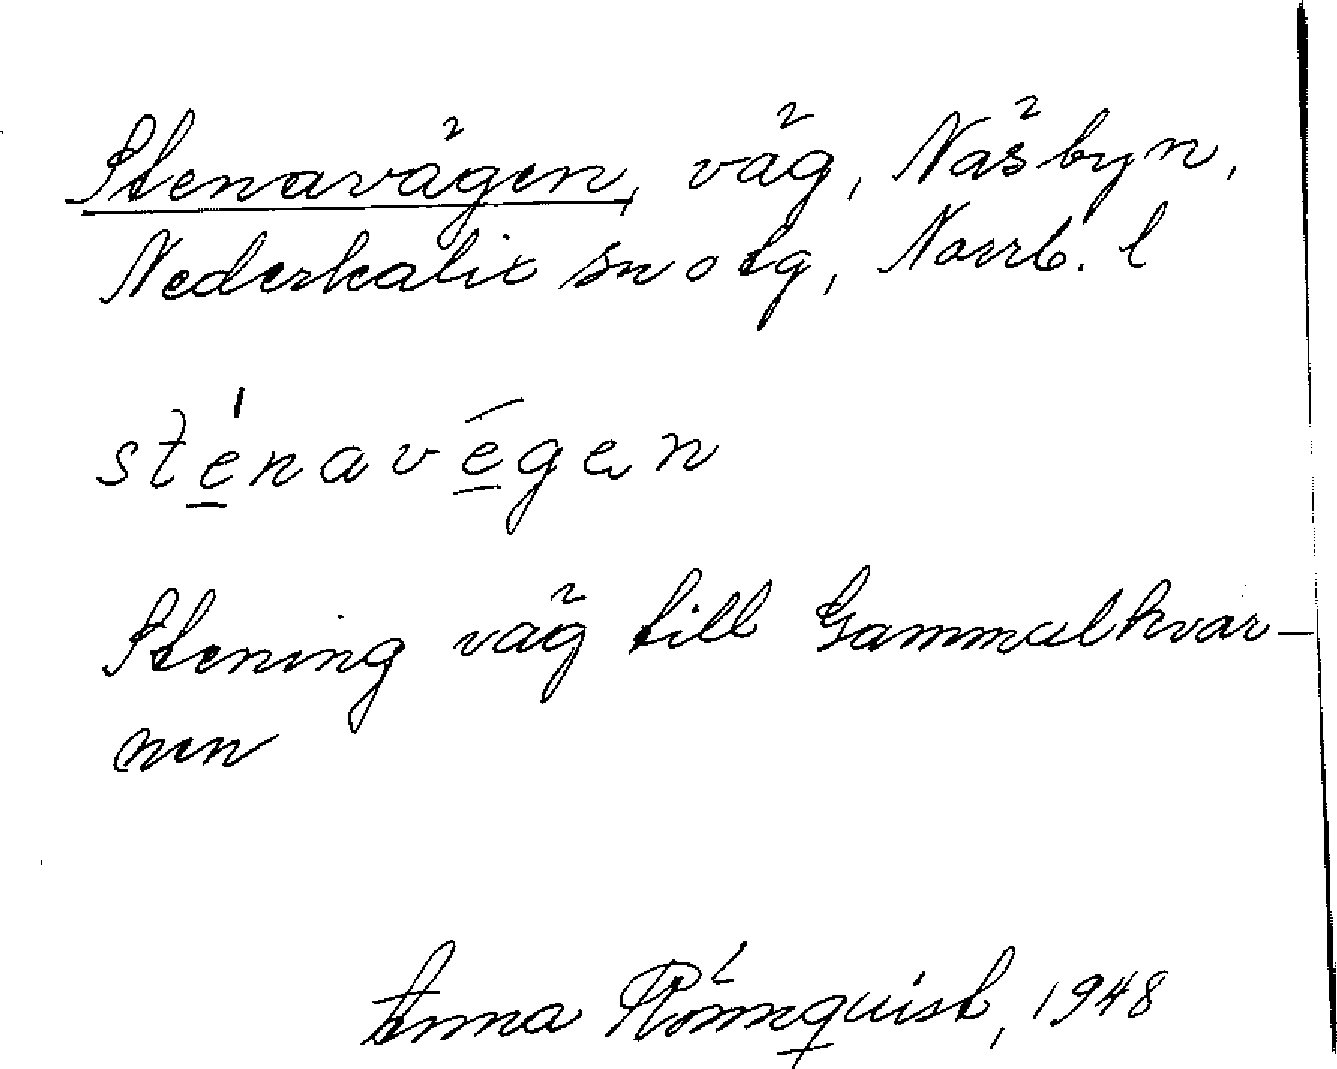 Stenavägen, väg, Näsbyn,
Nederkalix sn o tg, Norrb. l
sténavégen
Stening väg till Gammelkvar-
nen
Anna Rönnquist, 1948